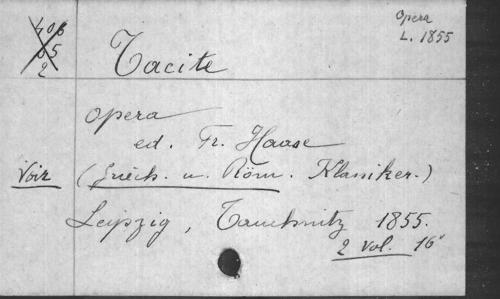 Opera
L. 1855
Tacite
opera
ed. Fr. Haase
Voir (Griech. u. Röm. Klassiker.)
Leipzig, Tauchnitz 1855.
2 vol. 16°